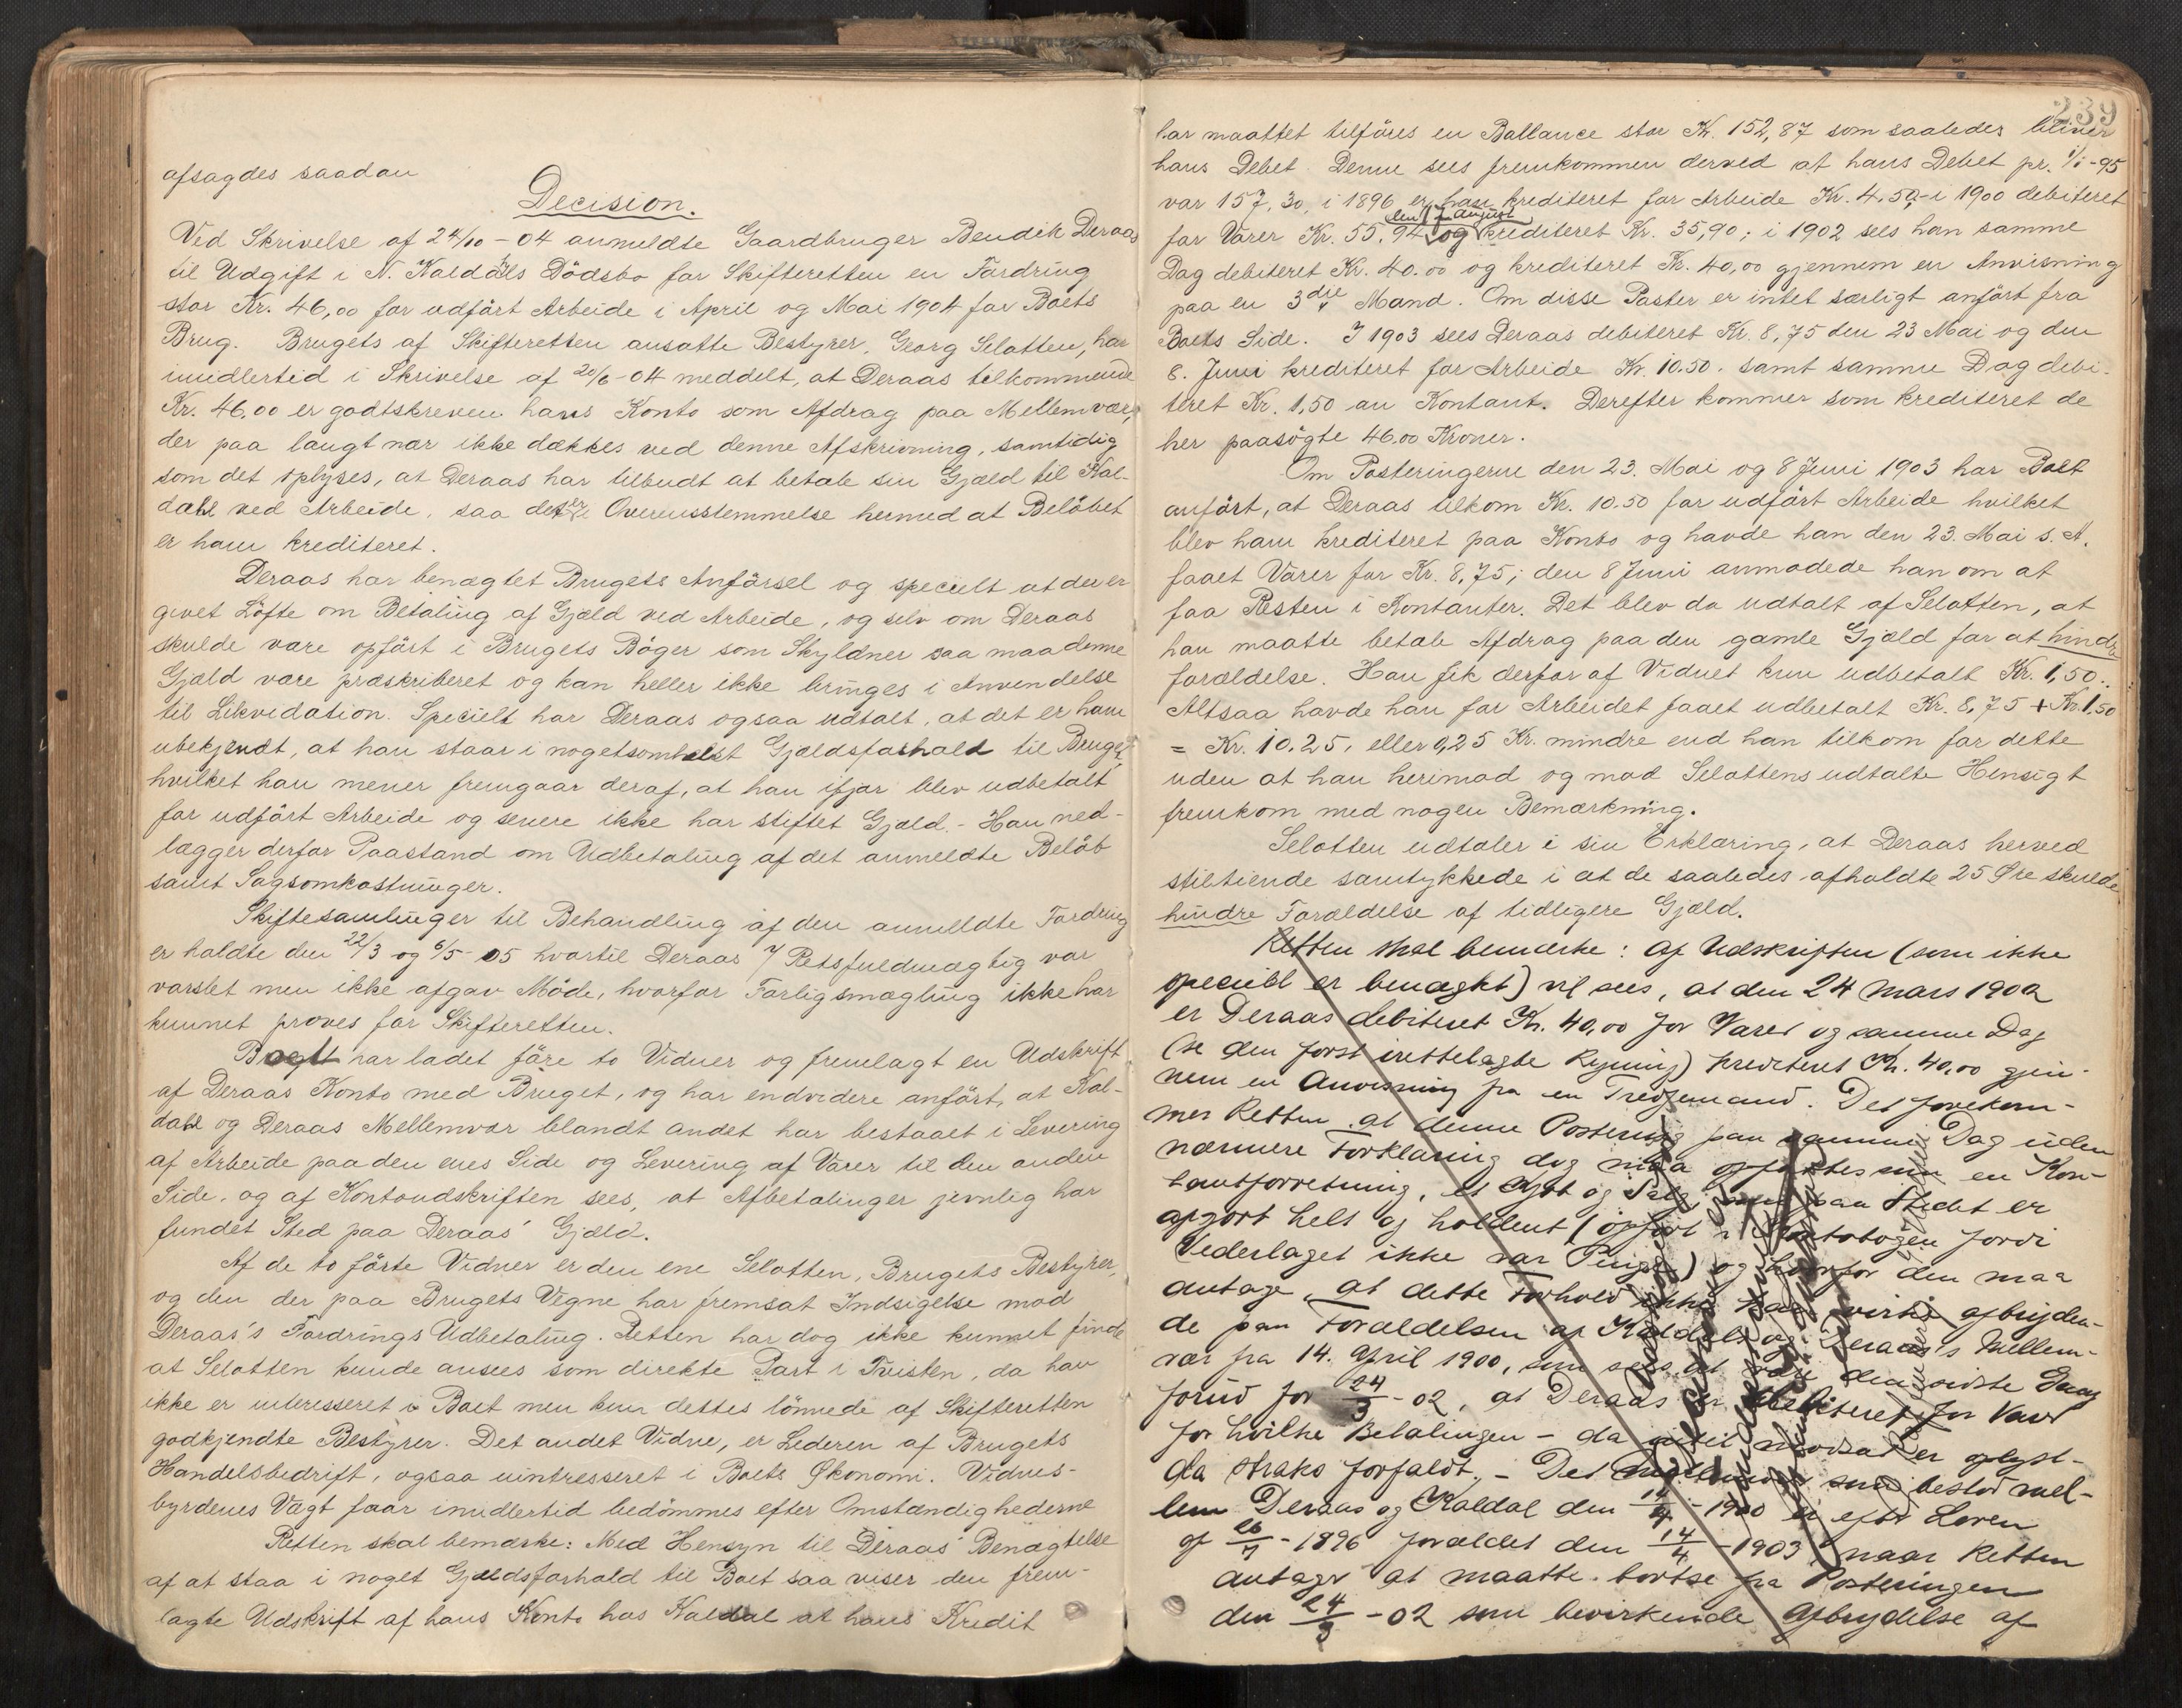 afsagdes saadan
Decision.
Ved Skrivelse af 24/10 - 04 anmeldte Gaardbruger Bendik Deraas
til Udgift i N. Kaldals Dödsbo for Skifteretten en Fordring
stor Kr. 46,00 for udfört Arbeide i April og Mai 1904 for Boets
Brug. Brugets af Skifteretten ansatte Bestyrer, Georg Selotten, har
imidlertid i Skrivelse af 20/6 - 04 meddelt, at Deraas tilkommende
Kr. 46.00 er godtskreven hans Konto som Afdrag paa Mellemvær,
der paa langt nær ikke dækkes ved denne Afskrivning, samtidig
som det oplyses, at Deraas har tilbudt at betale sin Gjæld til Kal-
dahl ved Arbeide, saa det er i Overensstemmelse hermed at Belöbet
er ham krediteret.
Deraas har benægtet Brugets Anförsel og specielt at der er
givet Löfte om Betaling af Gjæld ved Arbeide, og selv om Deraas
skulde være opfört i Brugets Böger som Skyldner saa maa denne
Gjæld være præskriberet og kan heller ikke bringes i Anvendelse
til Likvidation. Specielt har Deraas ogsaa udtalt, at det er ham
ubekjendt, at han staar i nogetsomhelst Gjældsforhold til Bruget,
hvilket han mener fremgaar deraf, at han ifjor blev udbetalt
for udfört Arbeide og senere ikke har stiftet Gjæld. - Han ned-
lægger derfor Paastand om Udbetaling af det anmeldte Belöb
samt Sagsomkostninger.
Skiftesamlinger til Behandling af den anmeldte Fordring
er holdte den 22/3 og 6/5 - 05 hvortil Deraas Retsfuldmægtig var
varslet men ikke afgav Möde, hvorfor Forligsmægling ikke har
kunnet pröves for Skifteretten.
Boet har ladet före to Vidner og fremlagt en Udskrift
af Deraas Konto med Bruget, og har endvidere anfört, at Kal-
dahl og Deraas Mellemvær blandt andet har bestaaet i Levering
af Arbeide paa den enes Side og Levering af Varer til den anden
Side, og af Kontoudskriften sees, at Afbetalinger jevnlig har
fundet Sted paa Deraas' Gjæld.
Af de to förte Vidner er den ene Selotten, Brugets Bestyrer,
og den der paa Brugets Vegne har fremsat Indsigelse mod
Deraas's Fordrings Udbetaling. Retten har dog ikke kunnet finde
at Selotten kunde ansees som direkte Part i Tvisten, da han
ikke er interesseret i Boet men kun dettes lönnede af Skifteretten
godkjendte Bestyrer. Det andet Vidne, er Lederen af Brugets
Handelsbedrift, ogsaa uintresseret i Boets Økonomi. Vidnes-
byrdenes Vægt faar imidlertid bedömmes efter Omstændighederne
Retten skal bemærke: Med Hensyn til Deraas' Benægtelse
af at staa i noget Gjældsforhold til Boet saa viser den frem-
lagte Udskrift af hans Konto hos Kaldal at hans Kredit
239
har maattet tilföres en Ballance stor Kr. 152,87 som saaledes bliver
hans Debet. Denne sees fremkommen derved at hans Debet pr. 1/1 - 95
var 157,30, i 1896 er han krediteret for Arbeide Kr. 4.50 - i 1900 debiteret
den 17 august
for Varer Kr. 55.94 og krediteret Kr. 35,90; i 1902 sees han samme
Dag debiteret Kr. 40.00 og krediteret Kr. 40,00 gjennem en Anvisning
paa en 3die Mand. Om disse Poster er intet særligt anfört fra
Boets Side. I 1903 sees Deraas debiteret Kr. 8,75 den 23 Mai og den
8. Juni krediteret for Arbeide Kr. 10.50. samt samme Dag debi-
teret Kr. 1,50 an Kontant. Derefter kommer som krediteret de
her paasögte 46.00 Kroner.
Om Posteringerne den 23. Mai og 8 Juni 1903 har Boet
anfört, at Deraas tilkom Kr. 10.50 for udfört Arbeide hvilket
blev ham krediteret paa Konto og havde han den 23. Mai s. A.
faaet Varer for Kr. 8,75; den 8 Juni anmodede han om at
faa Resten i Kontanter. Det blev da udtalt af Selotten, at
han maatte betale Afdrag paa den gamle Gjæld for at hindre
forældelse. Han fik derfor af Vidnet kun udbetalt Kr. 1,50.
Altsaa havde han for Arbeidet faaet udbetalt Kr. 8,75 + Kr. 1,50
= Kr. 10.25, eller 0,25 Kr. mindre end han tilkom for dette
uden at han herimod og mod Selottens udtalte Hensigt
fremkom med nogen Bemærkning.
Selotten udtaler i sin Erklæring, at Deraas herved
stiltiende samtykkede i at de saaledes afholdte 25 Øre skulde
hindre Forældelse af tidligere Gjæld.
Retten skal bemærke: Af Udskriften (som ikke
specielt er benægtet) vil sees, at den 24 Mars 1902
er Deraas debiteret Kr. 40,00 for Varer og samme Dag
(se den først irettelagte Regning) krediteret Kr. 40,00 gjen-
nem en Anvisning fra en Tredjemand. Det forekom-
mer Retten at denne Postering paa samme Dag uden
nærmere Forklaring dog maa opfattes som en Kon-
tantforretning, et Kjøb og Salg som paa Stedet er
afgjort helt og holdent (opført i Kontobogen fordi
Vederlaget ikke var Penge) og hvorfor den maa
antage, at dette Forhold ikke kan virke afbryden-
de paa Forældelsen af Kaldals og Deraas's Mellem-
vær fra 14. April 1900, som sees at være den sidste Dag
forud for 24/3 - 02, at Deraas er debiteret for Varer
for hvilke Betalingen - da intet modsat er oplyst -
da straks forfaldt. - Det som bestod mel-
lem Deraas og Kaldal den 14/4 - 1900 er efter Loven
af 26/7 - 1896 forældet den 14/4 - 1903, naar Retten
antager at maatte bortse fra Posteringen
den 24/3 - 02 som bevirkende Afbrydelse af